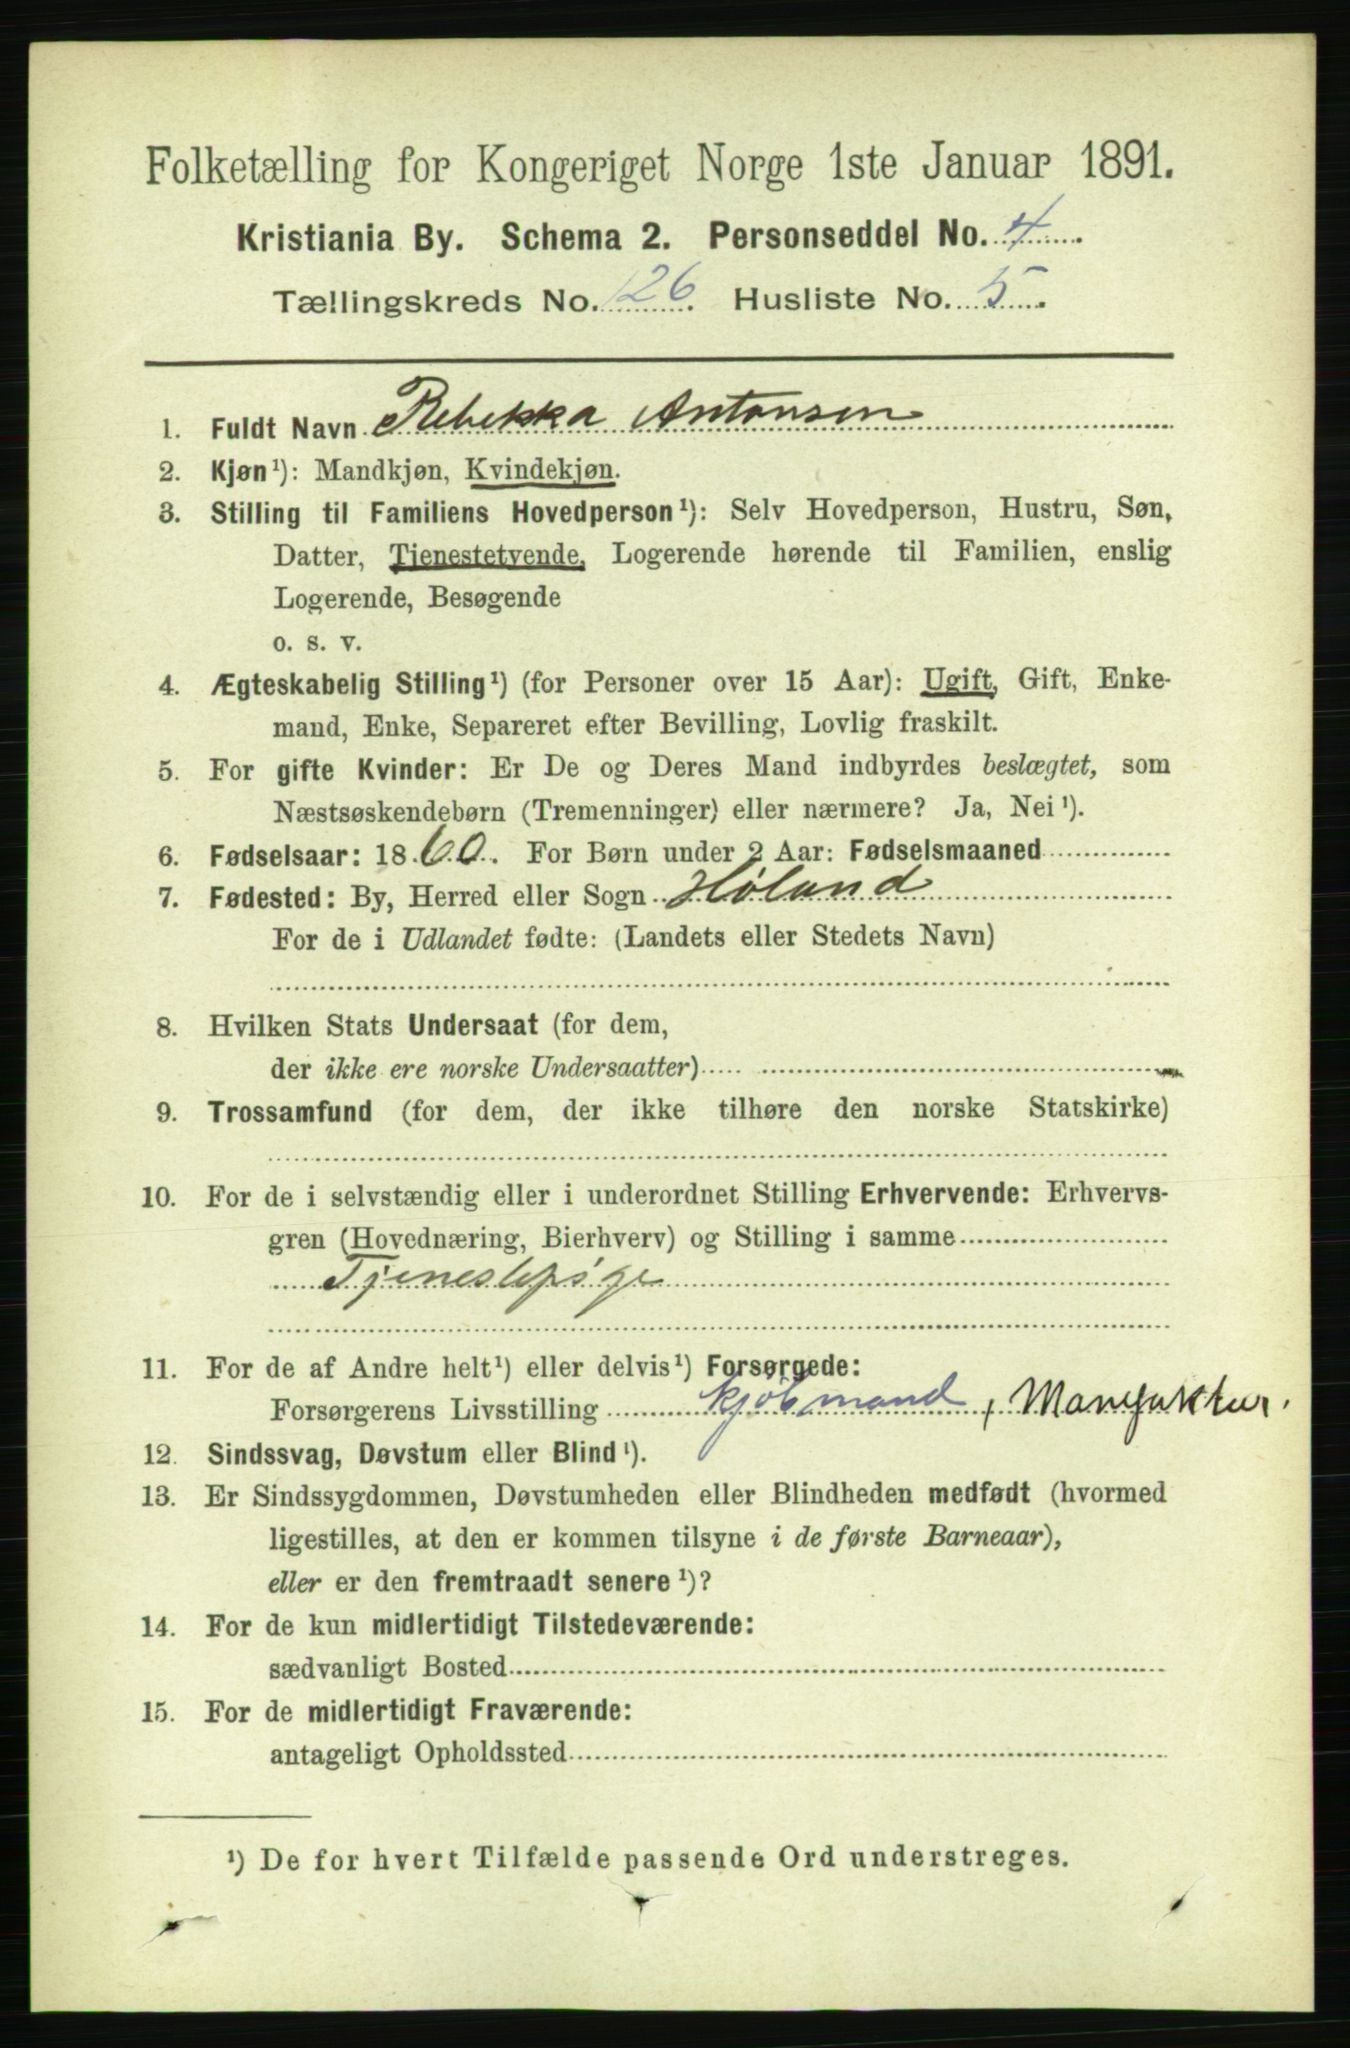 Folketælling for Kongeriget Norge 1ste Januar 1891.
Kristiania By. Schema 2. Personseddel No. 4.
Tællingskreds No. 126. Husliste No. 5.
1. Fuldt Navn Rebekka Antonsen
2. Kjøn¹): Mandkjøn, Kvindekjøn.
3. Stilling til Familiens Hovedperson¹): Selv Hovedperson, Hustru, Søn,
Datter, Tjenestetyende, Logerende hørende til Familien, enslig
Logerende, Besøgende
o. s. v.
4. Ægteskabelig Stilling¹) (for Personer over 15 Aar): Ugift, Gift, Enke-
mand, Enke, Separeret efter Bevilling, Lovlig fraskilt.
5. For gifte Kvinder: Er De og Deres Mand indbyrdes beslægtet, som
Næstsøskendebørn (Tremenninger) eller nærmere? Ja, Nei¹).
6. Fødselsaar: 1860. For Børn under 2 Aar: Fødselsmaaned
7. Fødested: By, Herred eller Sogn Høland
For de i Udlandet fødte: (Landets eller Stedets Navn)
8. Hvilken Stats Undersaat (for dem,
der ikke ere norske Undersaatter)
9. Trossamfund (for dem, der ikke tilhøre den norske Statskirke)
10. For de i selvstændig eller i underordnet Stilling Erhvervende: Erhvervs-
gren (Hovednæring, Bierhverv) og Stilling i samme
Tjenestepige
11. For de af Andre helt¹) eller delvis¹) Forsørgede:
Forsørgerens Livsstilling Kjöbmand, Manufaktur.
12. Sindssvag, Døvstum eller Blind¹).
13. Er Sindssygdommen, Døvstumheden eller Blindheden medfødt (hvormed
ligestilles, at den er kommen tilsyne i de første Barneaar),
eller er den fremtraadt senere¹)?
14. For de kun midlertidigt Tilstedeværende:
sædvanligt Bosted
15. For de midlertidigt Fraværende:
antageligt Opholdssted
¹) De for hvert Tilfælde passende Ord understreges.